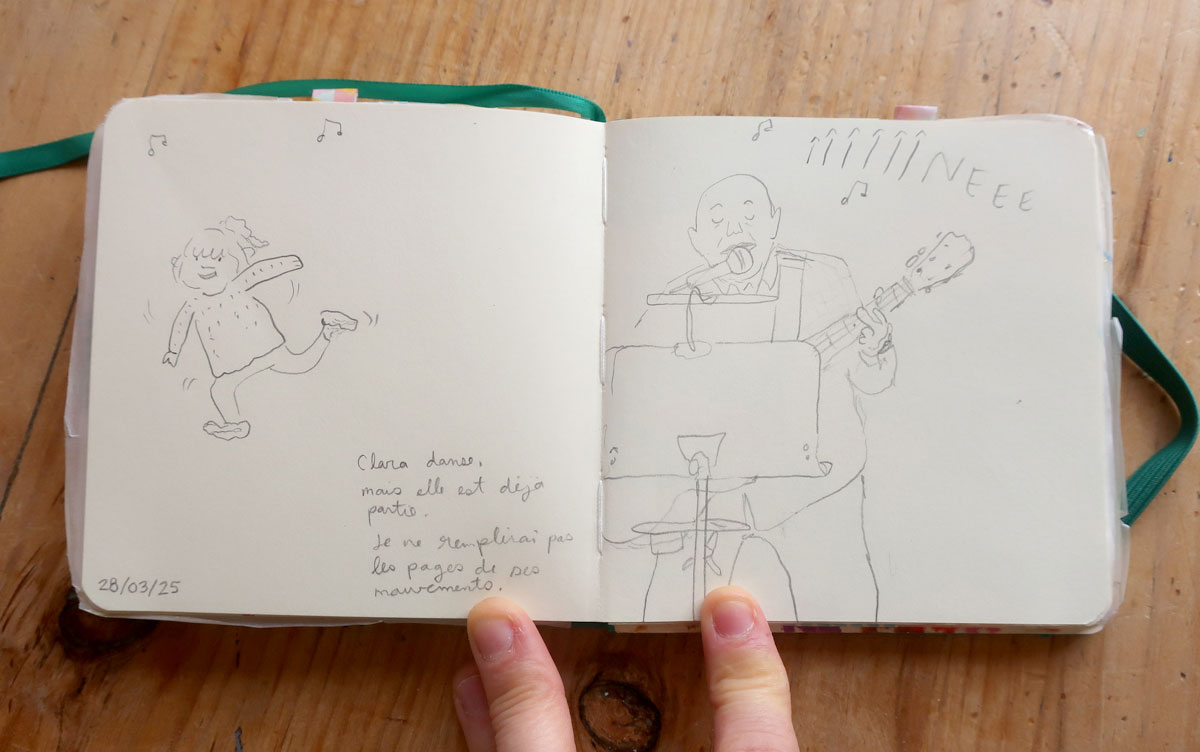 IIIIIIINEEE
Clara danse,
mais elle est déjà
partie.
Je ne remplirai pas
les pages de ses
mouvements.
28/03/25